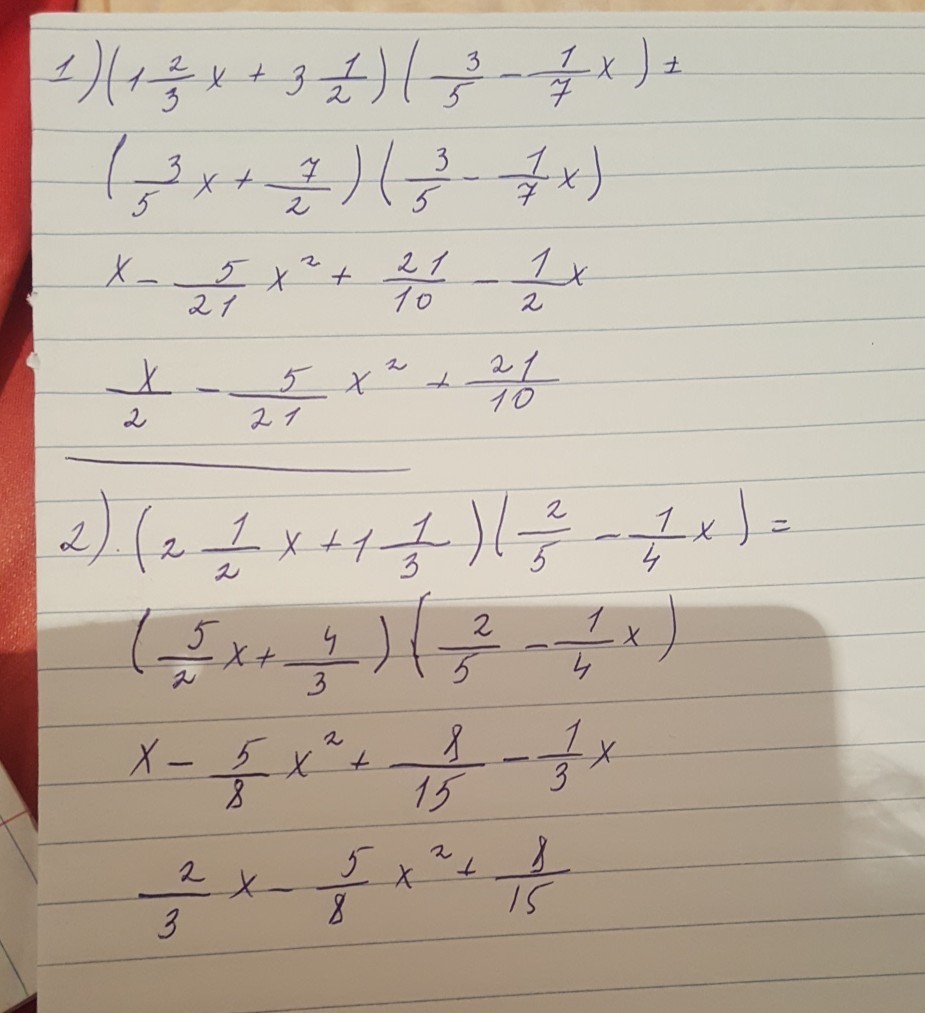 1) (1 2/3 x + 3 1/2) (3/5 - 1/7 x) =
(3/5 x + 7/2) (3/5 - 1/7 x)
x - 5/21 x² + 21/10 - 1/2 x
x/2 - 5/21 x² + 21/10
2). (2 1/2 x + 1 1/3) (2/5 - 1/4 x) =
(5/2 x + 4/3) (2/5 - 1/4 x)
x - 5/8 x² + 8/15 - 1/3 x
2/3 x - 5/8 x² + 8/15